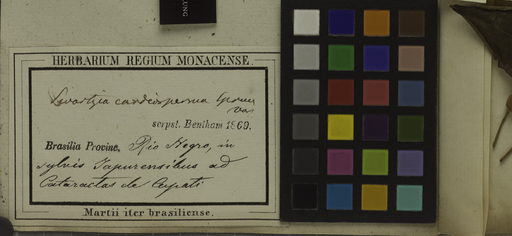 LUNG
HERBARIUM REGIUM MONACENSE.
Swartzia cardiosperma Spruce
var.
scrpst. Bentham 1869.
Brasilia Provinc. Rio Negro, in
sylvis Japurensibus ad
Cataractas de Cupati
Martii iter brasiliense.